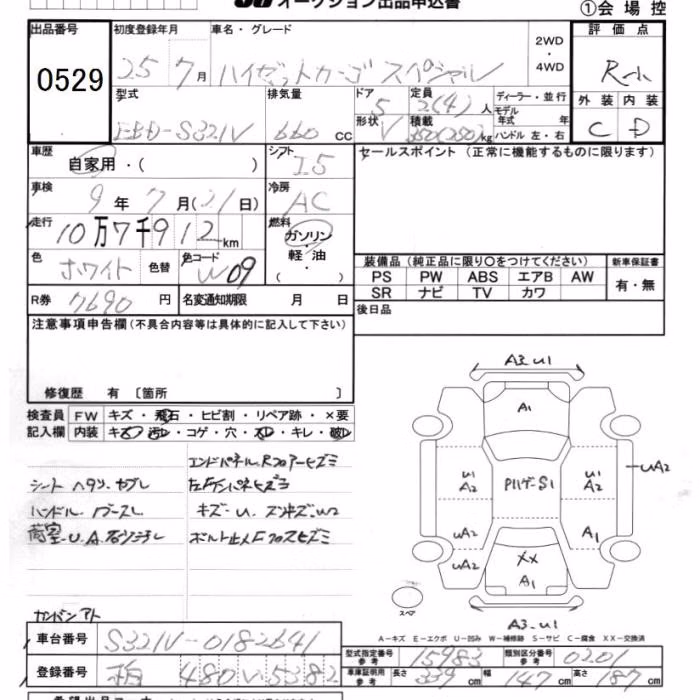 オークション出品申込書 ①会場控
出品番号 0529
初度登録年月 25 7月
車名・グレード ハイゼットカーゴ スペシャル
2WD・4WD
評価点 R-
外装 内装
C D
型式 EBD-S321V
排気量 660 cc
ドア 5 形状 V
定員 2(4)人
積載 350(250)kg
ディーラー・並行
モデル年式 年
ハンドル 左・右
車歴 自家用・( )
シフト I5
セールスポイント (正常に機能するものに限ります)
車検 9年7月(21日)
冷房 AC
走行 10万7千912km
燃料 ガソリン・軽油・( )
色 ホワイト 色替
色コード W09
装備品 (純正品に限り〇をつけてください) 新車保証書
PS PW ABS エアB AW 有・無
SR ナビ TV カワ
R券 7690円
名変通知期限 月 日
後日品
注意事項申告欄(不具合内容等は具体的に記入して下さい)
修復歴 有 〔箇所 〕
検査員 FW キズ・飛石・ヒビ割・リペア跡・×要
記入欄 内装 キズ・汚レ・コゲ・穴・スレ・キレ・破レ
エンドパネル.Rフロアーヒズミ
シート ヘタリ.ヤブレ
ハンドル
荷室.U.A.
キズ-U.
カンバンアト
A3.U1
A1
U1
A2
U1
A2
UA2
UA2
A1
UA2
XX
A1
スペア
A3.U1
A-キズ E-エクボ U-凹み W-補修跡 S-サビ C-腐食 XX-交換済
車台番号 S321V-0182641
型式指定番号 参考 15983
類別区分番号 参考 0201
登録番号 480 V.5382
車庫証明用 参考 長さ 339cm 幅 147cm 高さ 187cm